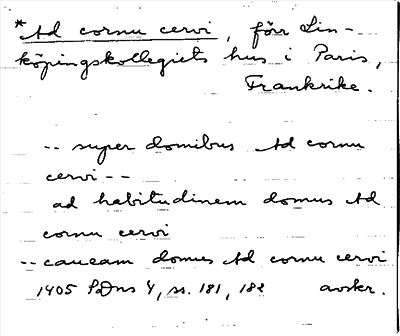 *Ad cornu cervi, förr Lin-
köpingskollegiets hus i Paris,
Frankrike.
-- super domibus Ad cornu
cervi --
ad habitudinem domus Ad
cornu cervi
-- caucam domus Ad cornu cervi
1405 SDns 4, ss. 181, 182 avskr.